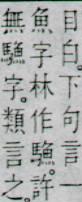 目白。下句言一
魚字林作。許
無字。類言之。